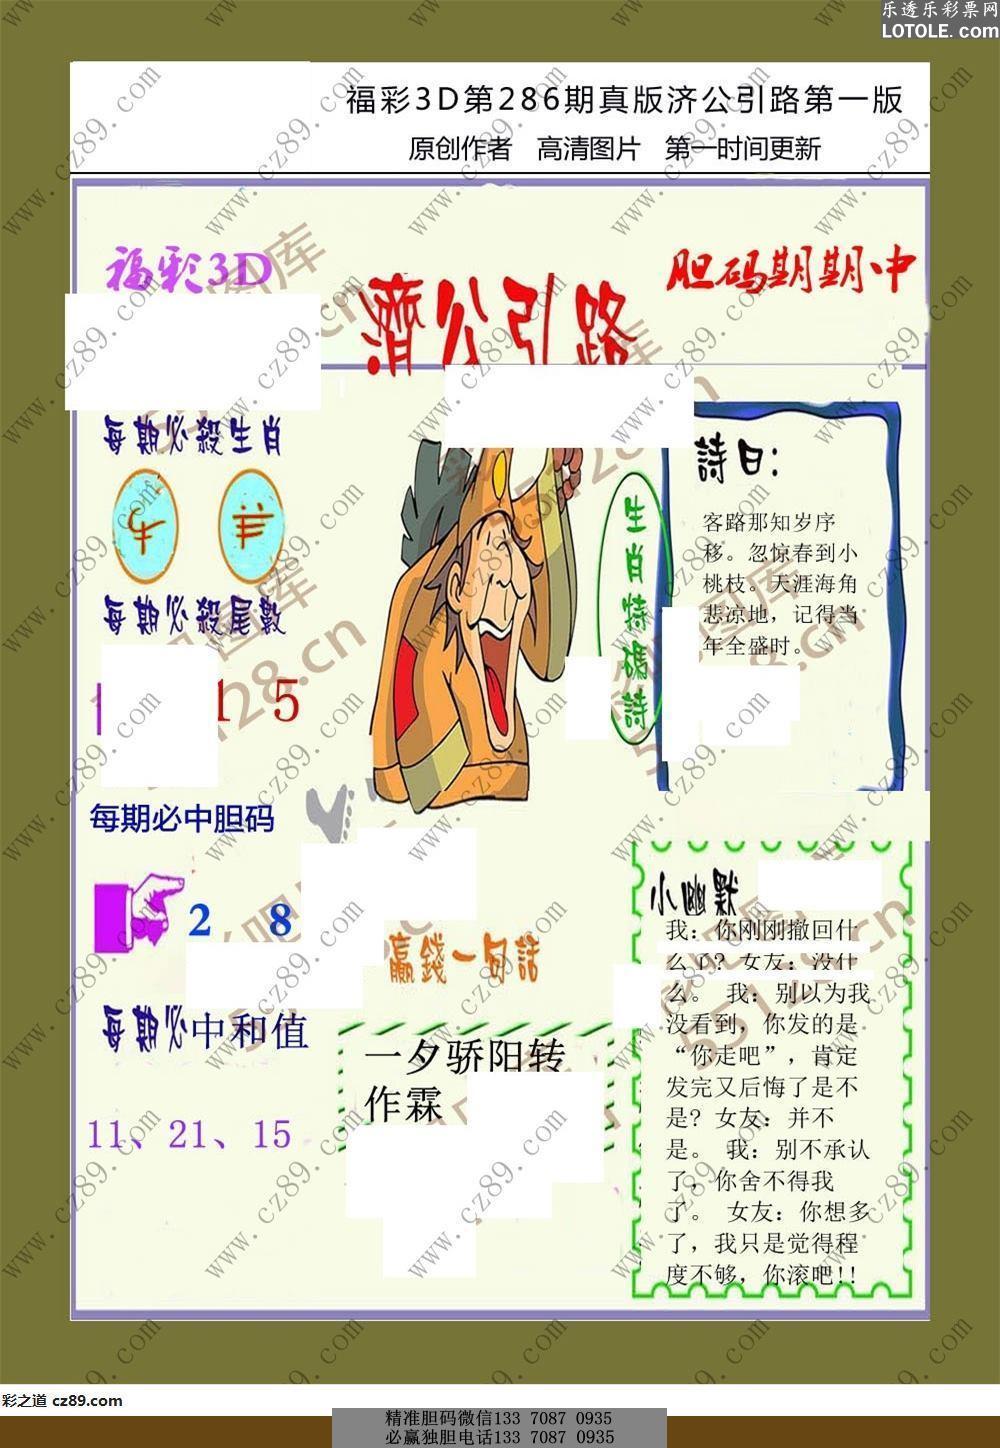 乐透乐彩票网
LOTOLE. com
福彩3D第286期真版济公引路第一版
原创作者 高清图片 第一时间更新
福彩3D
濟公引路
胆码期期中
每期必殺生肖
牛
每期必殺尾數
1 5
每期必中胆码
2 8
每期必中和值
11、21、15
生肖特碼詩
詩曰:
客路那知岁序
移。忽惊春到小
桃枝。天涯海角
悲凉地，记得当
年全盛时。
贏錢一句話
一夕骄阳转
作霖
小幽默
我：你刚刚撤回什
么了？女友：没什
么。 我：别以为我
没看到，你发的是
“你走吧”，肯定
发完又后悔了是不
是？女友：并不
是。 我：别不承认
了，你舍不得我
了。 女友：你想多
了，我只是觉得程
度不够，你滚吧!!
www.cz89.com
彩吧图库
55128.cn
彩之道 cz89.com
精准胆码微信133 7087 0935
必赢独胆电话133 7087 0935